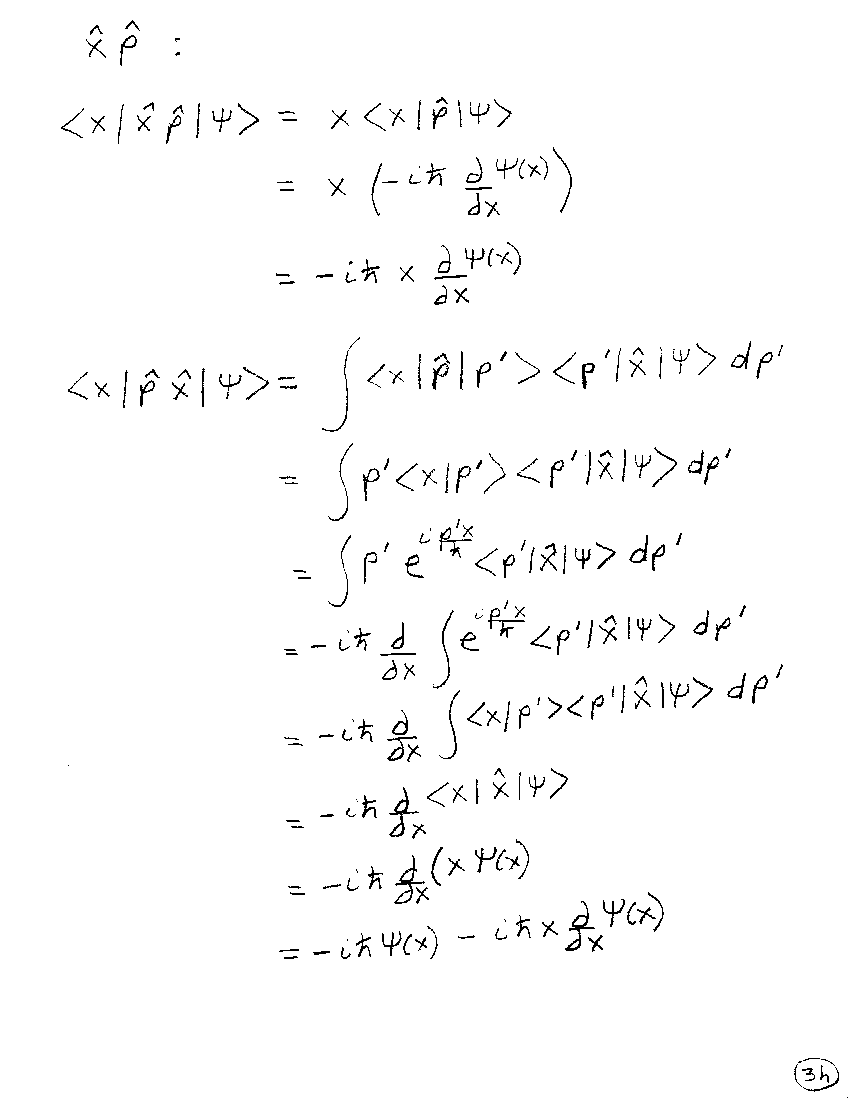 x̂ p̂ :
<x|x̂ p̂|Ψ> = x <x|p̂|Ψ>
= x (-iħ d/dx Ψ(x))
= -iħ x d/dx Ψ(x)
<x|p̂ x̂|Ψ> = ∫ <x|p̂|p'> <p'|x̂|Ψ> dp'
= ∫ p' <x|p'> <p'|x̂|Ψ> dp'
= ∫ p' e^{i p'x/ħ} <p'|x̂|Ψ> dp'
= -iħ d/dx ∫ e^{i p'x/ħ} <p'|x̂|Ψ> dp'
= -iħ d/dx ∫ <x|p'> <p'|x̂|Ψ> dp'
= -iħ d/dx <x|x̂|Ψ>
= -iħ d/dx (x Ψ(x)
= -iħ Ψ(x) - iħ x d/dx Ψ(x)
3h